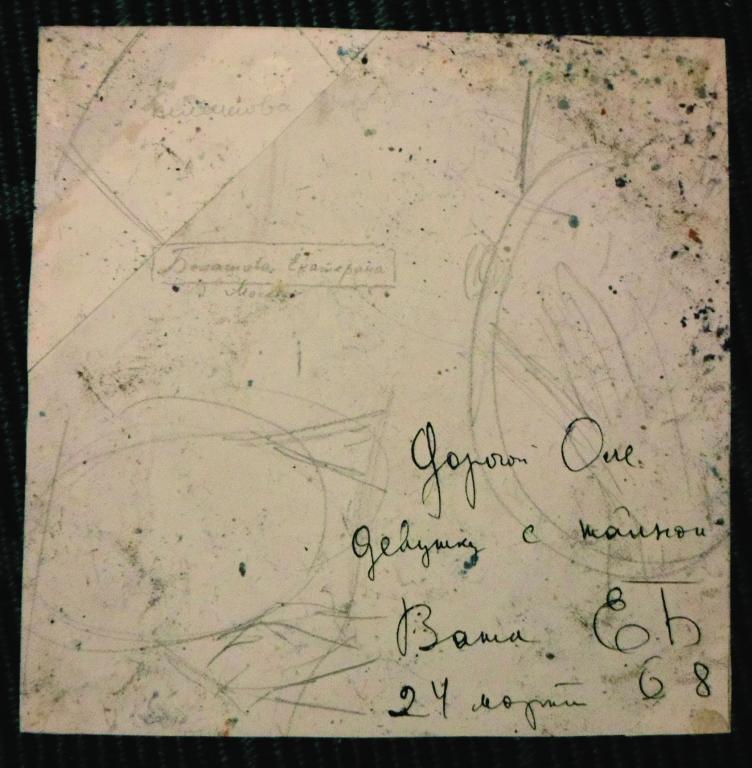 Екатерина
Дорогой Оле
девушку с тайной
Ваша ЕБ
24 марта 68